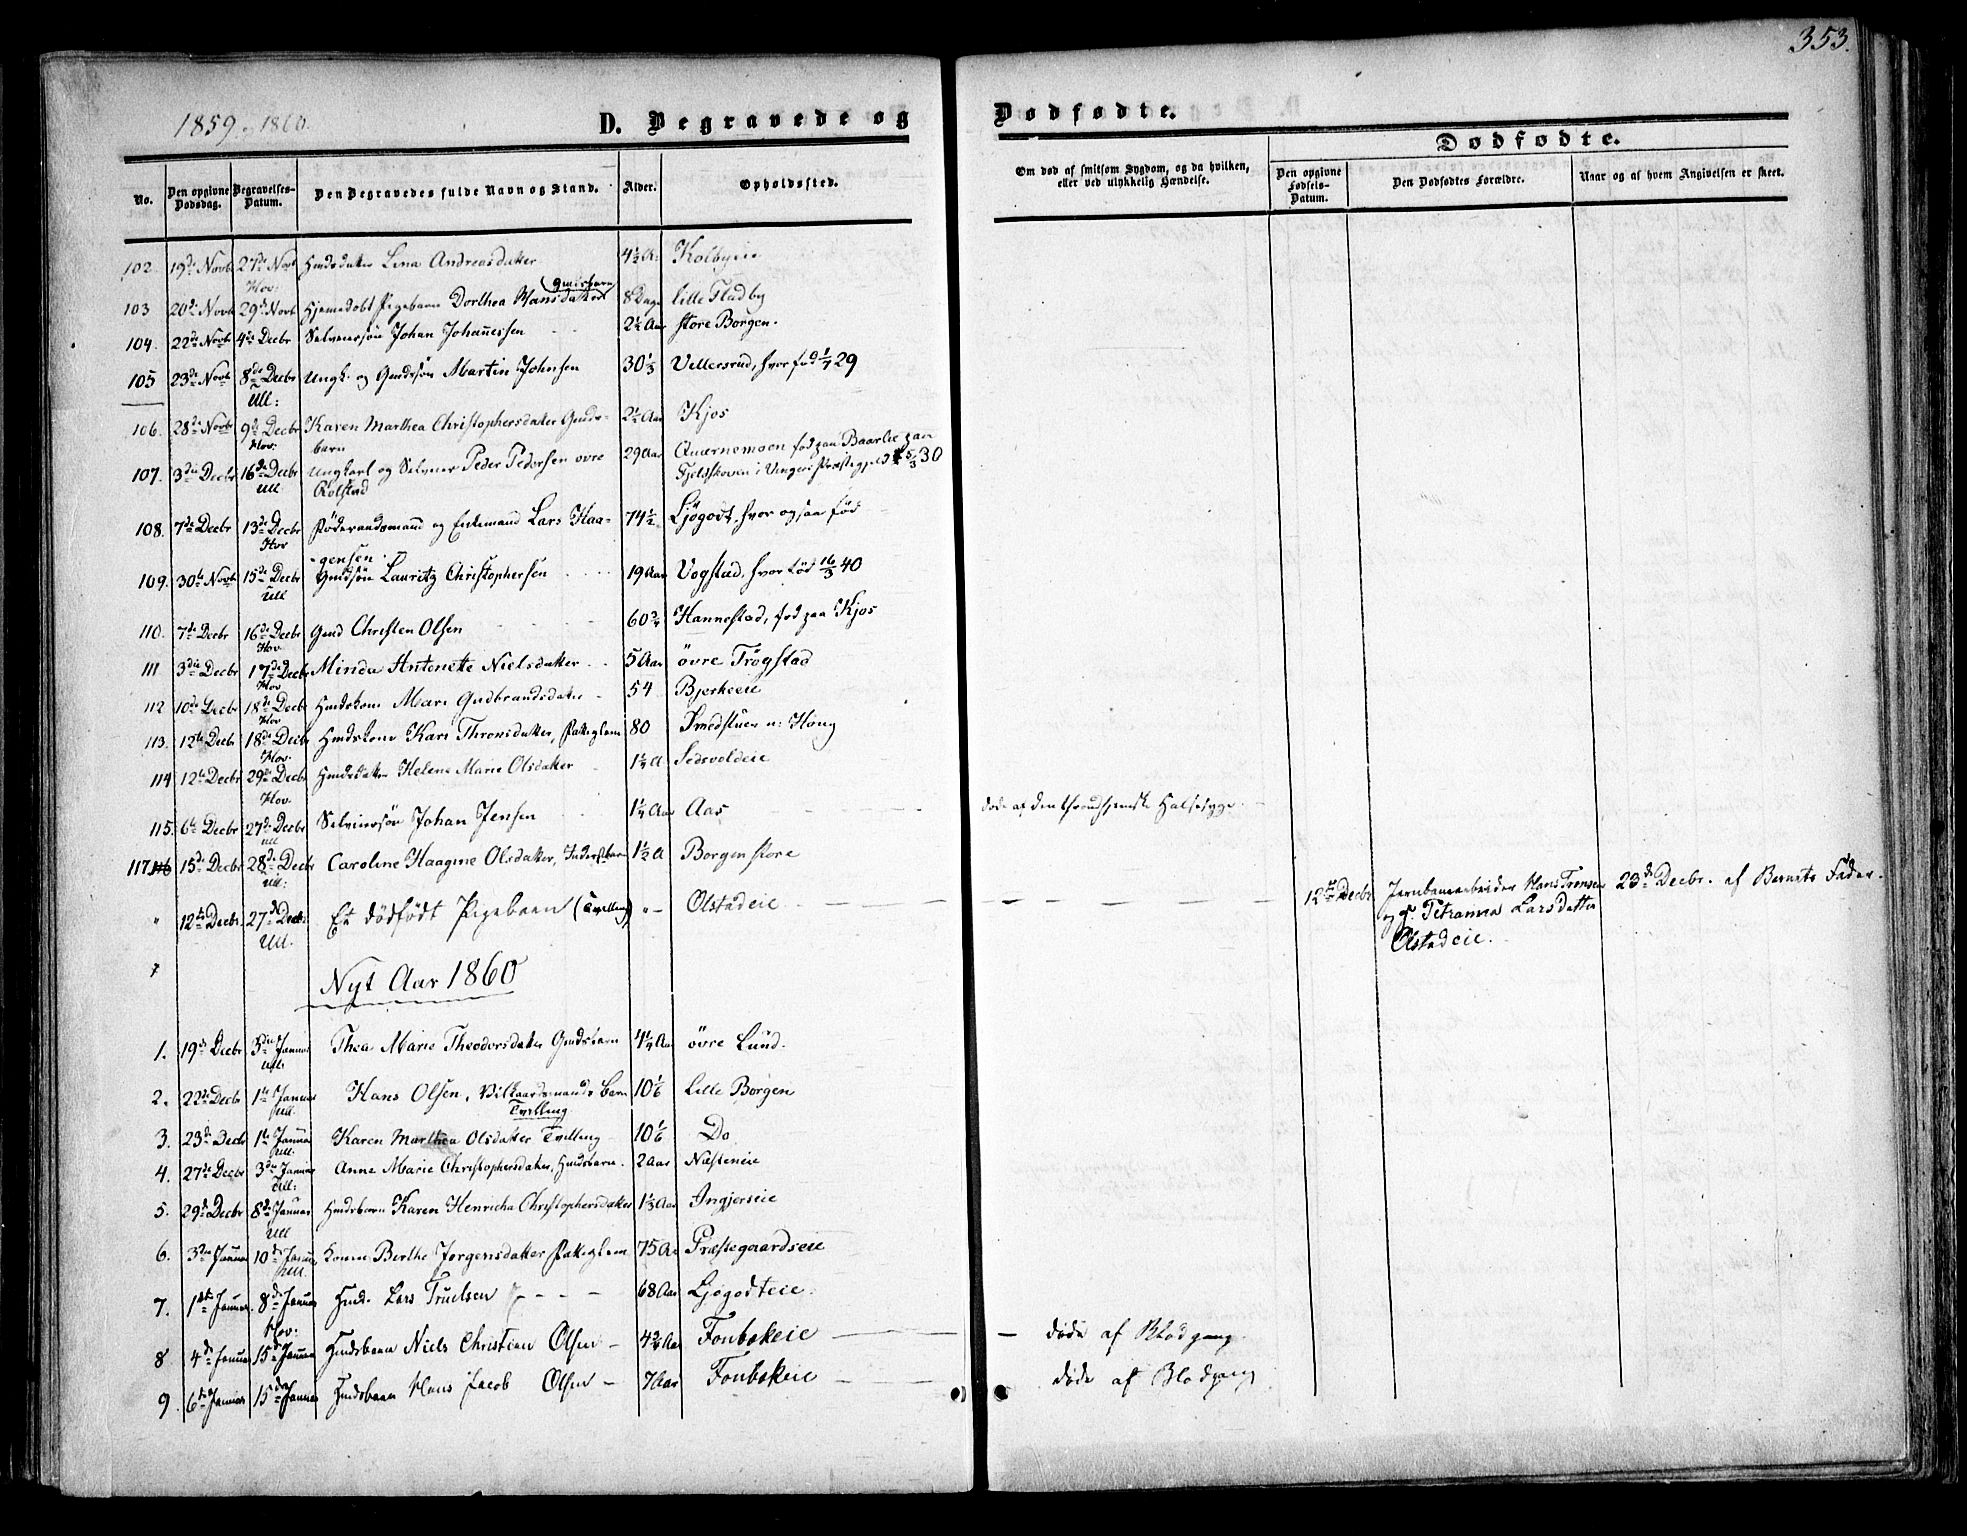 353.
1859 & 1860.
D. Begravede og
Dødfødte.
Dødfødte.
No.
Den opgivne Dødsdag.
Begravelses-Datum.
Den Begravedes fulde Navn og Stand.
Alder.
Opholdssted.
Om død af smitsom Sygdom, og da hvilken, eller ved ulykkelig Hændelse.
Den opgivne Fødsels-Datum.
Den Dødfødtes Forældre.
Naar og af hvem Angivelsen er skeet.
102 19de Novb 27de Novb Huusdatter Lina Andreasdatter 4½ A. Kolbyeie
Hov: Gaardbarn
103 20de Novb 29de Novb Hjemmedøbt Pigebarn Dorthea Hansdatter 8 Dage Lille Fladby
104. 22de Novb 4de Decbr Selveiersøn Johan Johannessen 2½ Aar store Borgen.
105 23de Novb 8de Decbr Ungk. og Gmdssøn Martin Johnsen 30 1/3 Vellersrud, hvor fød 1/7 29
Ull:
106. 28de Novb 9de Decbr Karen Marthea Christophersdatter Gmds- 2½ Aar Kjos
Hov. barn
107. 3die Decbr 16de Decbr Ungkarl og Selveier Peder Pedersen øvre 29 Aar Qværnemoen fød paa Baarlie paa
Ull Rolstad Fjeldskoven i Vinger Præstegjeld 5/3 30
108. 7de Decbr 13de Decbr Føderaadsmand og Enkemand Lars Haa- 74½ Ljøgodt, hvor ogsaa fød
Hov gensen
109. 30te Novb 15de Decbr Gmdssøn Lauritz Christophersen 19 Aar Vogstad, hvor fød 16/3 40
Ull
110. 7de Decbr 16de Decbr Gmd Christen Olsen 60 3/4 Hannestad, fød paa Kjos
Hov.
111 3die Decbr 17de Decbr Minda Antonette Nielsdatter 5 Aar øvre Trøgstad
Hov
112 10de Decbr 18de Decbr Huuskone Mari Gudbrandsdatter 54 Bjerkeeie
Hov
113. 12te Decbr 18de Decbr Huuskone Kari Thronsdatter, Fattiglem 80 Smedstuen u: Haug
Hov.
114 12te Decbr 29de Decbr Huusdatter Helene Marie Olsdatter 1¼ A Sedsvoldeie
Hov.
115. 6te Decbr 27de Decbr Selveiersøn Johan Jensen 1¼ Aar Aas døde af den ondartede Halssyge
Ull
117. 116 15de Decbr 28de Decbr Caroline Haagine Olsdatter, Inderstbarn 1½ A Borgen store
Ull:
" 12te Decbr. 27de Decb: Et dødfødt Pigebarn (Tvilling) "- Olstadeie 12te Decbr Jernbanearbeider Hans Trønsen 23de Decbr. af Barnets Fader.
Ull. og Petranna Larsdatter
Olstadeie.
Nyt Aar 1860
1. 19de Decbr 5die Januar Thea Marie Theodorsdatter Gmdsbarn 4¼ Aar øvre Lund.
Ull.
2. 22de Decb 1ste Januar Hans Olsen, Vilkaarsmands barn 10 1/6 Lille Borgen
Ull. Tvilling
3. 23de Decbr 1ste Januar Karen Marthea Olsdatter Tvilling 10 1/6 Do
Ull.
4. 27de Decbr 3die Januar Anne Marie Christophersdatter, Huusbarn. 2 Aar Næsteneie
Ull:
5. 29de Decbr 8de Januar Huusbarn Karen Henricha Christophersdatter 1⅓ Aar Ingierseie
Ull
6. 3die Januar 10de Januar Konen Berthe Jørgensdatter Fattiglem 75 Aar Præstegaardseie
Ull.
7. 1ste Januar. 8de Januar Huusm. Lars Truelsen 68 Aar Ljøgodteie.
Hov:
8 4de Januar 15de Januar Huusbarn Niels Christian Olsen 4 Aar Fonbækeie døde af Blodgang.
9. 6te Januar 15de Januar Huusbarn Hans Jacob Olsen 7 Aar Fonbækeie døde af Blodgang